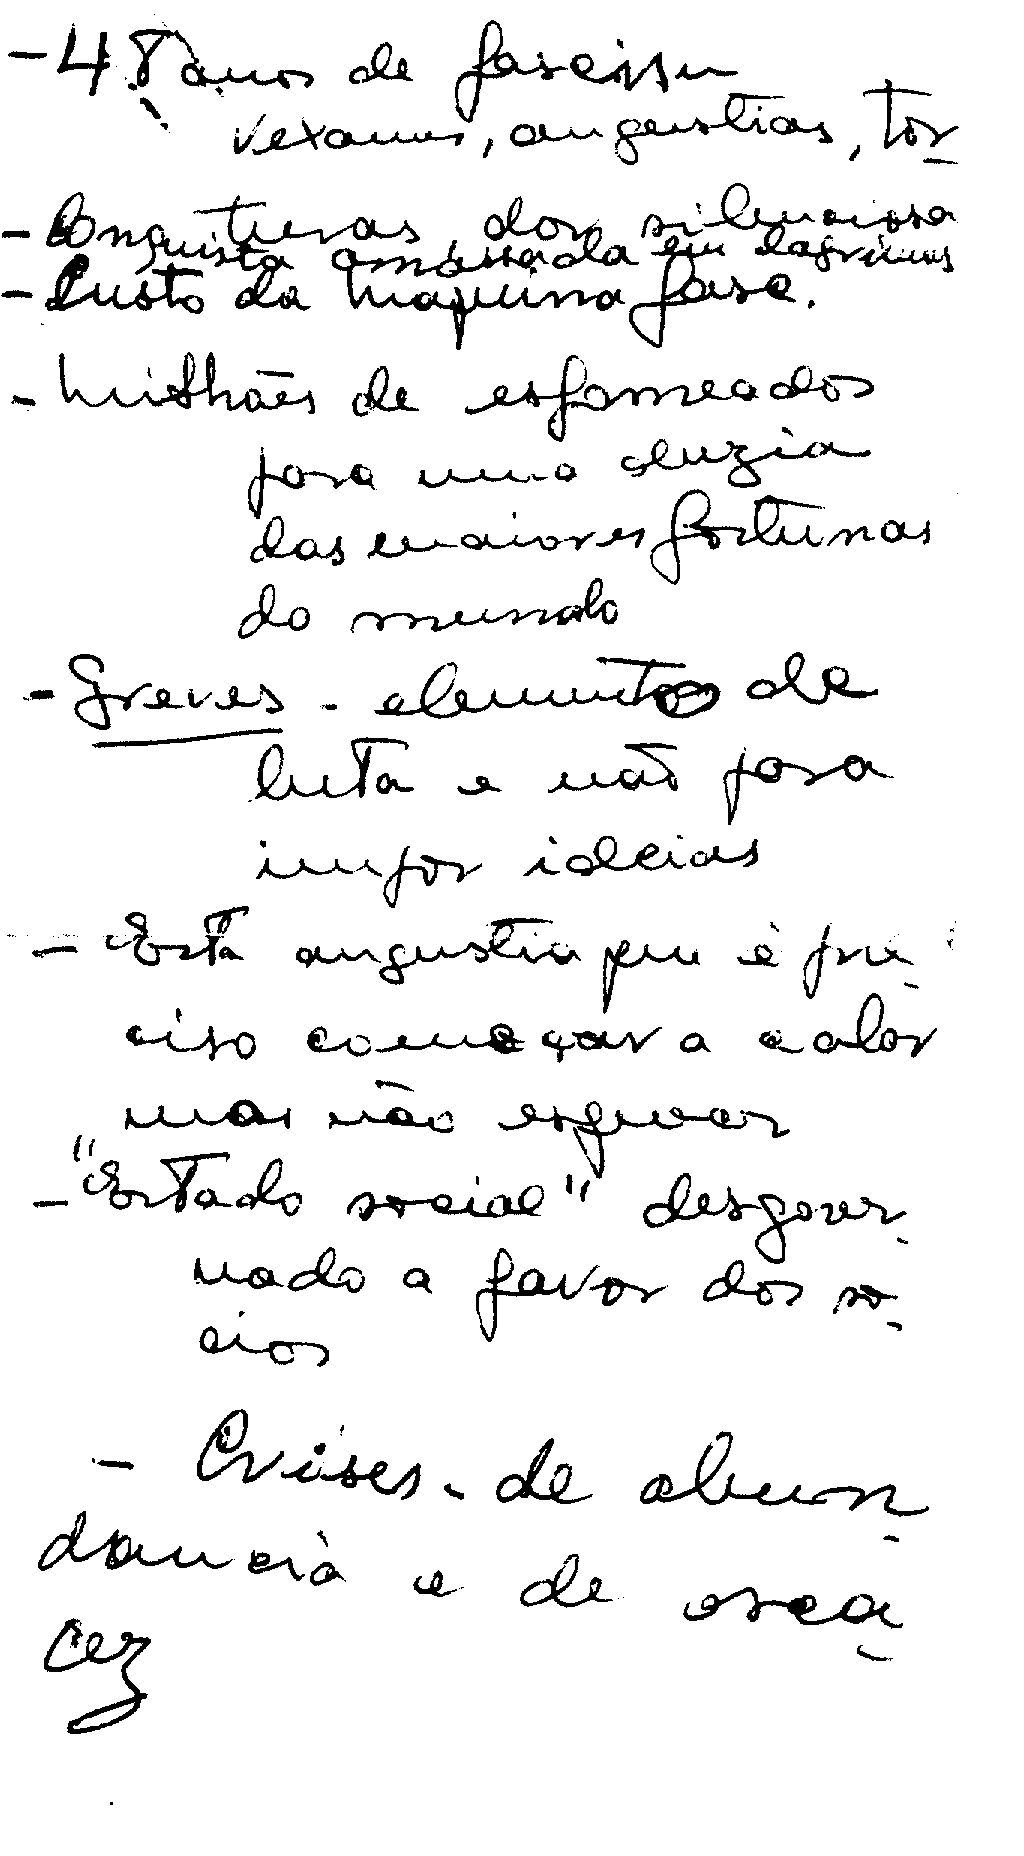 - 48 anos de fascism
vexames, angustias, tor-
turas, dor silenciosa
- Conquista amassada em lagrimas
- Custo da maquina fasc.
- Milhões de esfomeados
para uma duzia
das maiores fortunas
do mundo
- Greves - elemento de
luta e não para
impor ideias
- Esta angustia que é pre-
ciso começar a calar
mas não esquecer
- "Estado social" desgover-
nado a favor dos só-
cios
- Crises - de abun-
dancia e de esca-
cez